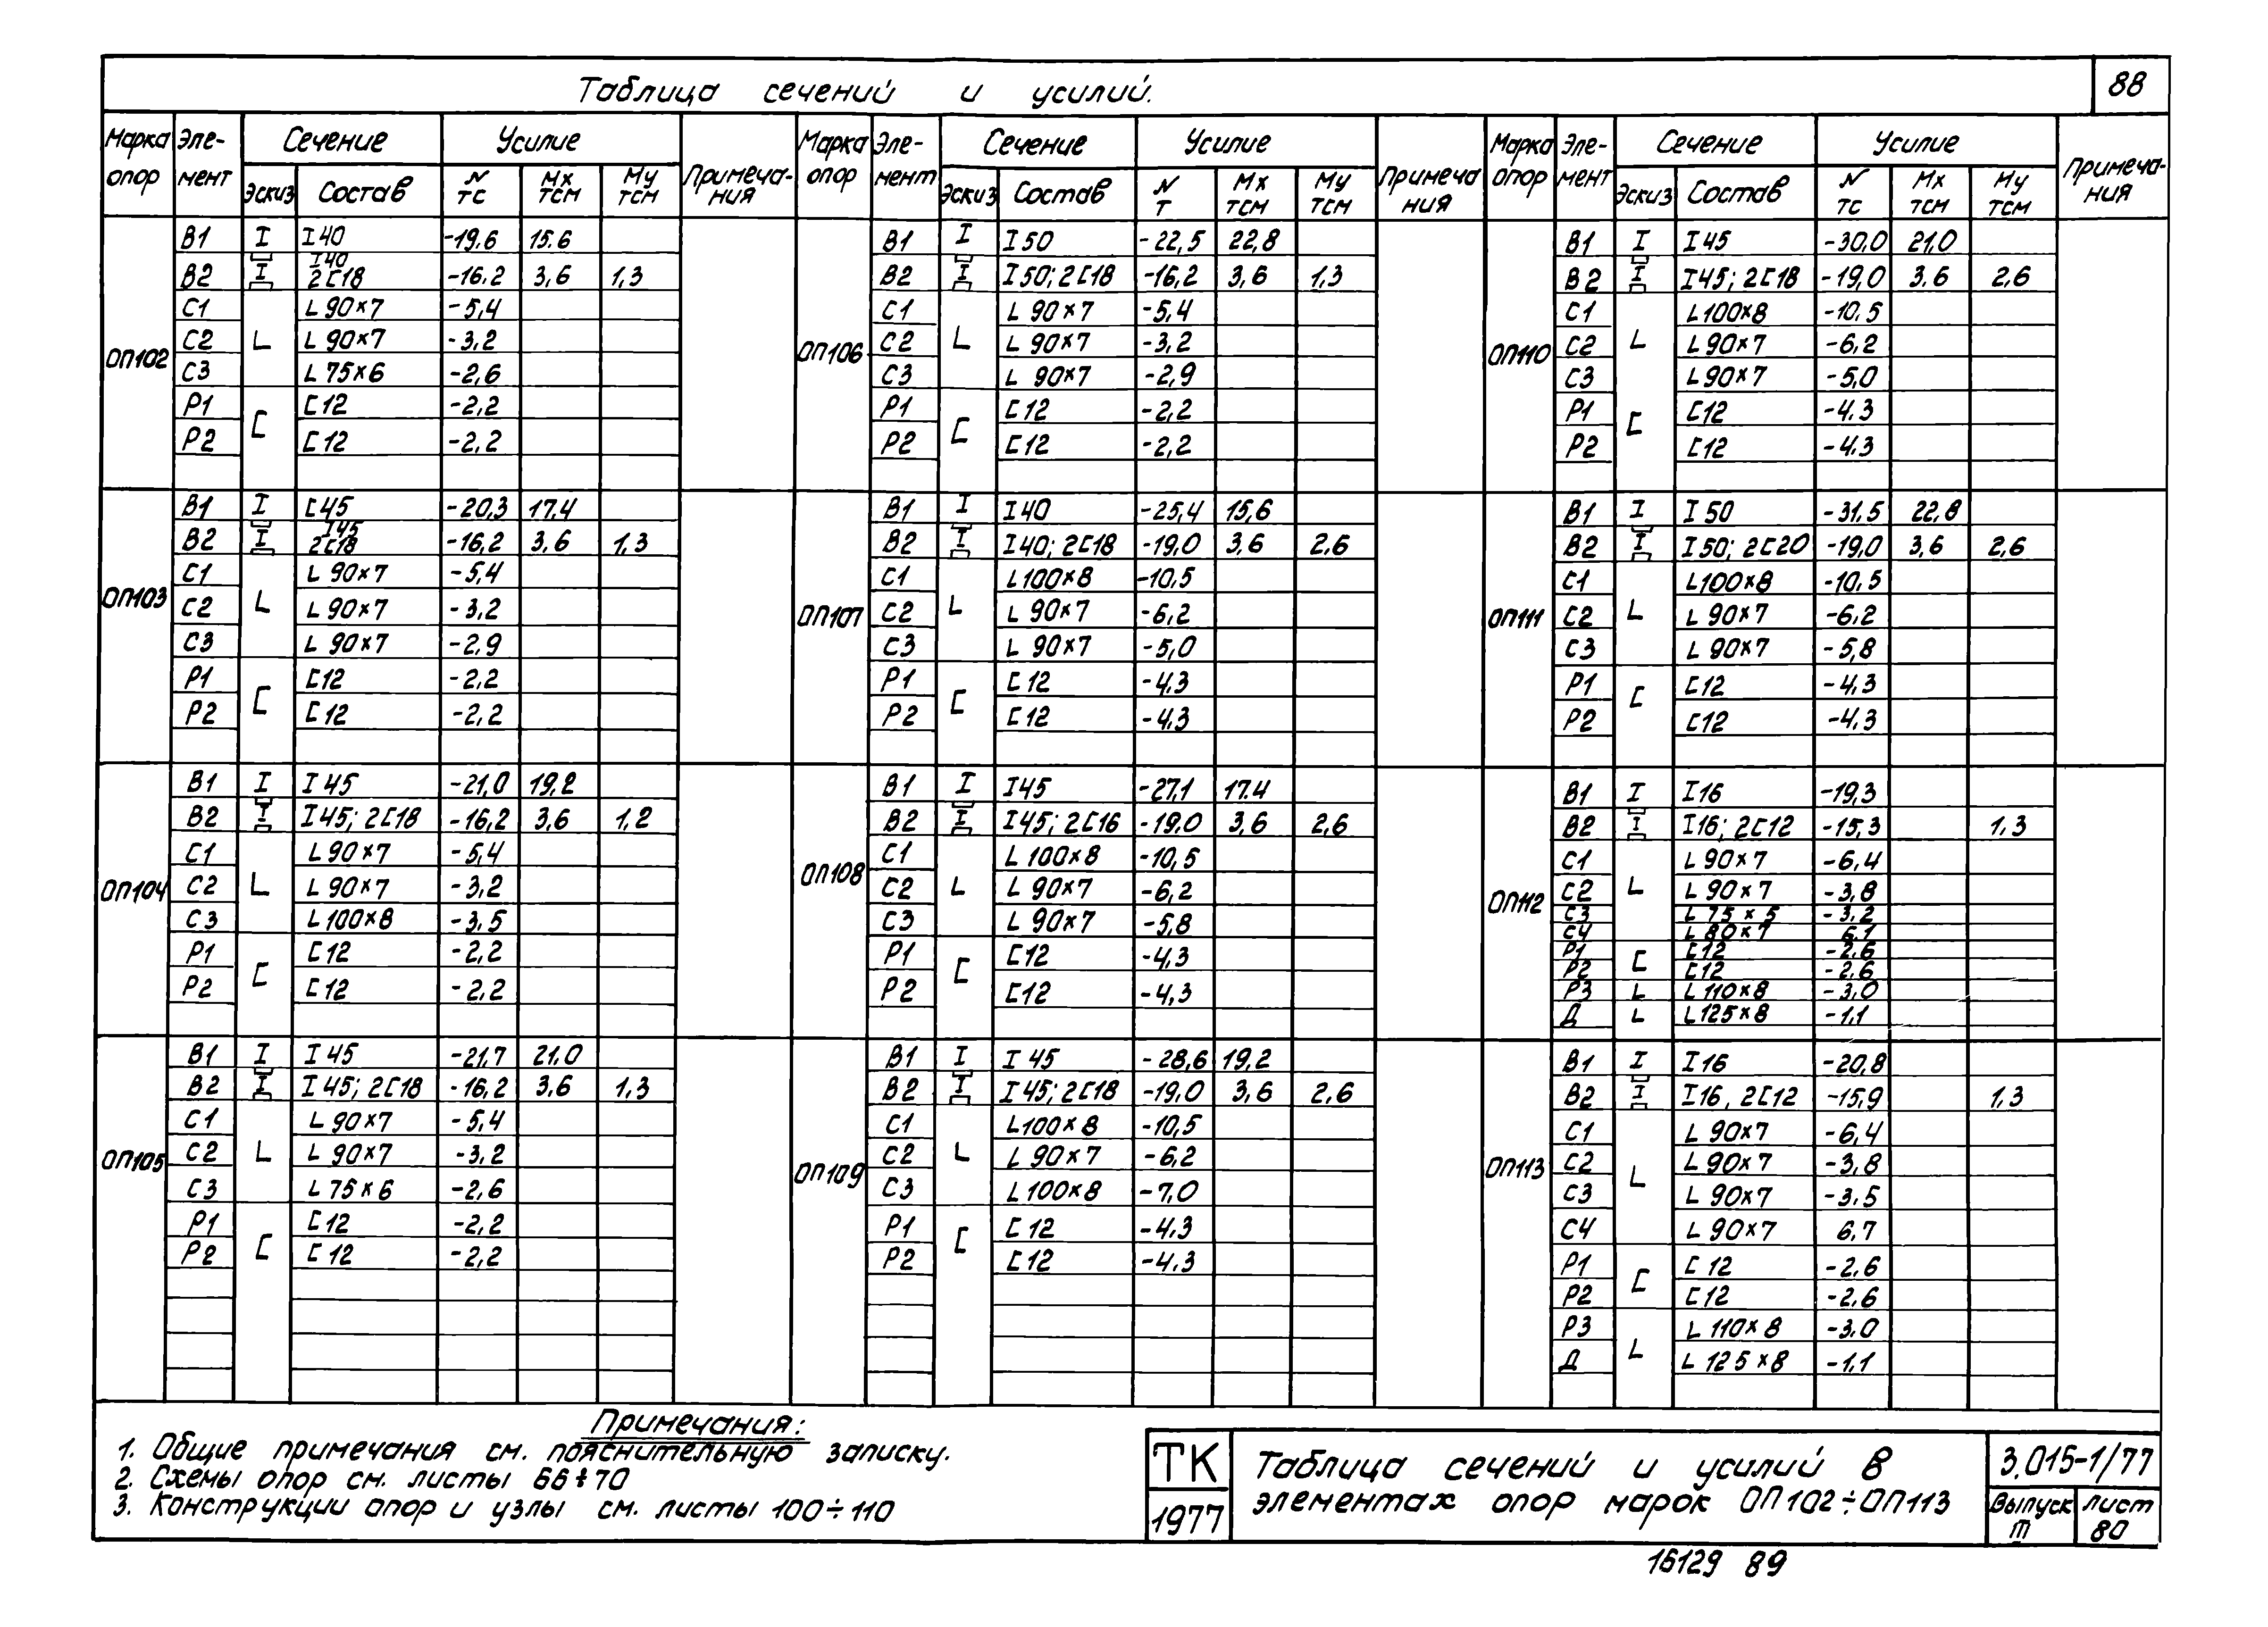 Таблица сечений и усилий.
88
Марка опор Эле-мент Сечение Усилие Примеча-ния
Эскиз Состав N тс Мх тсм Му тсм
ОП102
В1 I I40 -19.6 15.6
В2 I I40 2[18 -16.2 3,6 1,3
С1 L 90×7 -5,4
С2 L L 90×7 -3,2
С3 L 75×6 -2,6
Р1 [ [12 -2,2
Р2 [12 -2,2
ОП103
В1 I [45 -20,3 17.4
В2 I I45 2[18 -16,2 3,6 1,3
С1 L 90×7 -5,4
С2 L L 90×7 -3,2
С3 L 90×7 -2,9
Р1 [ [12 -2,2
Р2 [12 -2,2
ОП104
В1 I I45 -21,0 19,2
В2 I I45; 2[18 -16,2 3,6 1,2
С1 L 90×7 -5,4
С2 L L 90×7 -3,2
С3 L 100×8 -3,5
Р1 [ [12 -2,2
Р2 [12 -2,2
ОП105
В1 I I45 -21,7 21.0
В2 I I45; 2[18 -16,2 3,6 1,3
С1 L 90×7 -5,4
С2 L L 90×7 -3,2
С3 L 75×6 -2,6
Р1 [ [12 -2,2
Р2 [12 -2,2
Марка опор Эле-мент Сечение Усилие Примеча ния
Эскиз Состав N т Мх тсм Му тсм
ОП106
В1 I I50 -22,5 22,8
В2 I I50; 2[18 -16,2 3,6 1,3
С1 L 90×7 -5,4
С2 L L 90×7 -3,2
С3 L 90×7 -2,9
Р1 [ [12 -2,2
Р2 [12 -2,2
ОП107
В1 I I40 -25,4 15,6
В2 I I40; 2[18 -19,0 3,6 2,6
С1 L100×8 -10,5
С2 L L 90×7 -6,2
С3 L 90×7 -5,0
Р1 [ [12 -4,3
Р2 [12 -4.3
ОП108
В1 I I45 -27,1 17.4
В2 I I45; 2[16 -19,0 3,6 2,6
С1 L 100×8 -10,5
С2 L L 90×7 -6,2
С3 L 90×7 -5,8
Р1 [ [12 -4,3
Р2 [12 -4,3
ОП109
В1 I I45 -28,6 19,2
В2 I I45; 2[18 -19,0 3,6 2,6
С1 L100×8 -10,5
С2 L L 90×7 -6,2
С3 L100×8 -7,0
Р1 [ [12 -4,3
Р2 [12 -4.3
Марка опор Эле-мент Сечение Усилие Примеча-ния
Эскиз Состав N тс Мх тсм Му тсм
ОП110
В1 I I45 -30,0 21,0
В2 I I45; 2[18 -19,0 3.6 2,6
С1 L100×8 -10,5
С2 L L 90×7 -6,2
С3 L90×7 -5,0
Р1 [ [12 -4.3
Р2 [12 -4.3
ОП111
В1 I I50 -31,5 22,8
В2 I I50; 2[20 -19,0 3,6 2,6
С1 L100×8 -10,5
С2 L L 90×7 -6,2
С3 L 90×7 -5,8
Р1 [ [12 -4,3
Р2 [12 -4,3
ОП112
В1 I I16 -19,3
В2 I I16; 2[12 -15,3 1,3
С1 L 90×7 -6,4
С2 L L 90×7 -3,8
С3 L 75×5 -3,2
С4 L 80×7 6,1
Р1 [ [12 -2,6
Р2 [12 -2,6
Р3 L L 110×8 -3,0
Д L L 125×8 -1,1
ОП113
В1 I I16 -20,8
В2 I I16, 2[12 -15,9 1,3
С1 L 90×7 -6,4
С2 L L 90×7 -3,8
С3 L 90×7 -3,5
С4 L 90×7 6,7
Р1 [ [12 -2,6
Р2 [12 -2,6
Р3 L L 110×8 -3,0
Д L 125×8 -1,1
Примечания:
1. Общие примечания см. пояснительную записку.
2. Схемы опор см. листы 66÷70
3. Конструкции опор и узлы см. листы 100÷110
ТК
1977
Таблица сечений и усилий в
элементах опор марок ОП102÷ОП113
3.015-1/77
Выпуск III
лист 80
16129 89